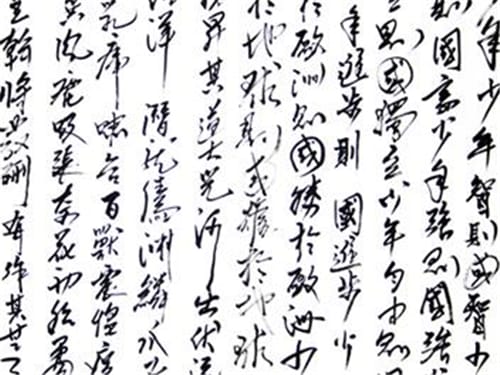 年少年智則國智少
則國富少年強則國強
則國獨立少年自由則國
年進步則國進步少
於歐洲則國勝於歐洲少
於地球則國雄於地球
昇其道大光河出伏流
洋潛龍騰淵鱗爪飛
乳虎嘯谷百獸震惶
風塵吸張奇花初胎矞
皇幹將發硎有作其芒